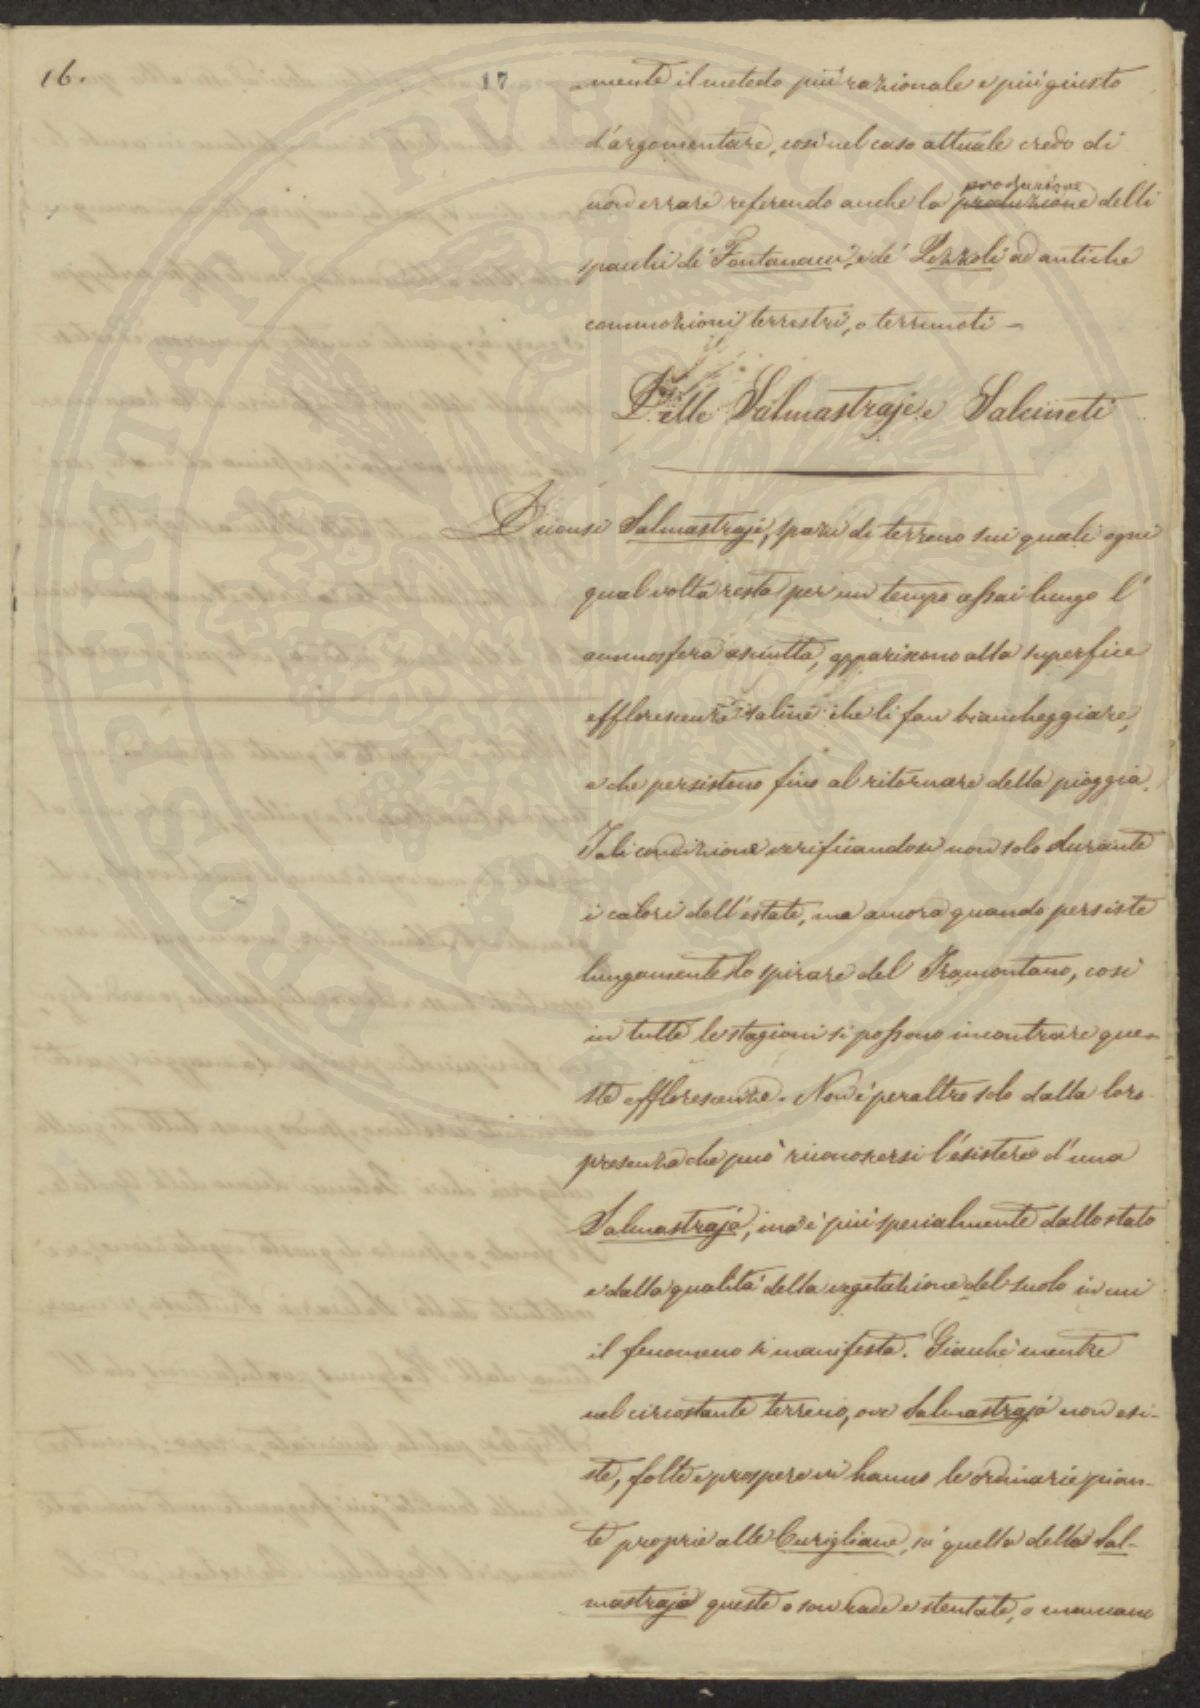 16.
17
mente il metodo più razionale e più giusto
d'argomentare, così nel caso attuale credo di
non errare referendo anche la produzione produzione delli
spacchi de' Fontanacci, e de' Pozzoli ad antiche
commozioni terrestri, o terremoti –
Delle Salmastraje e Salcineti
Diconsi Salmastraje, spazii di terreno sui quali ogni
qual volta resta per un tempo assai lungo l'
atmosfera asciutta, appariscono alla superfice
efflorescenze saline che li fan biancheggiare,
e che persistono fino al ritornare della pioggia.
Tali condizione verificandosi non solo durante
i calori dell'estate, ma ancora quando persiste
lungamente lo spirare del Tramontano, così
in tutte le stagioni si possono incontrare que-
ste efflorescenze. Non è peraltro solo dalla loro
presenza che può riconoscersi l'esistere d'una
Salmastraja, ma è più specialmente dallo stato
e dalla qualità della vegetazione del suolo in cui
il fenomeno si manifesta. Giacché mentre
nel circostante terreno, ove Salmastraja non esi-
ste, folte e prospere vi hanno le ordinarie pian-
te proprie alle Cerigliane, in quello della Sal-
mastraja queste o son rade e stentate, o mancano